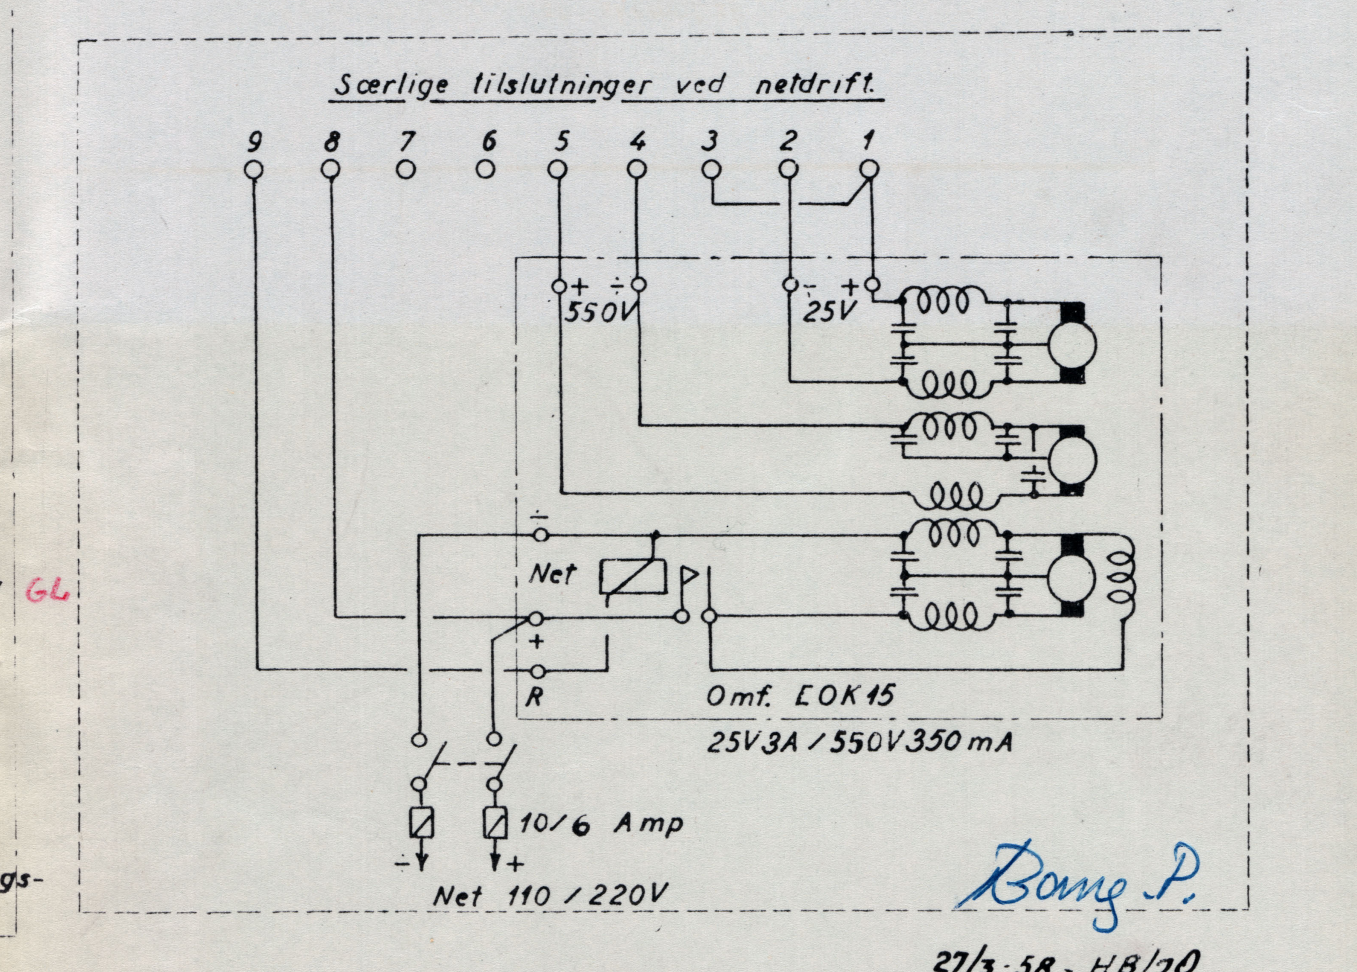 Særlige tilslutninger ved netdrift.
9 8 7 6 5 4 3 2 1
+ ÷ ÷ +
550V 25V
÷
Net
+
R
Omf. EOK15
25V3A / 550V350mA
10/6 Amp
÷ +
Net 110 / 220V
GL
gs-
Bang P.